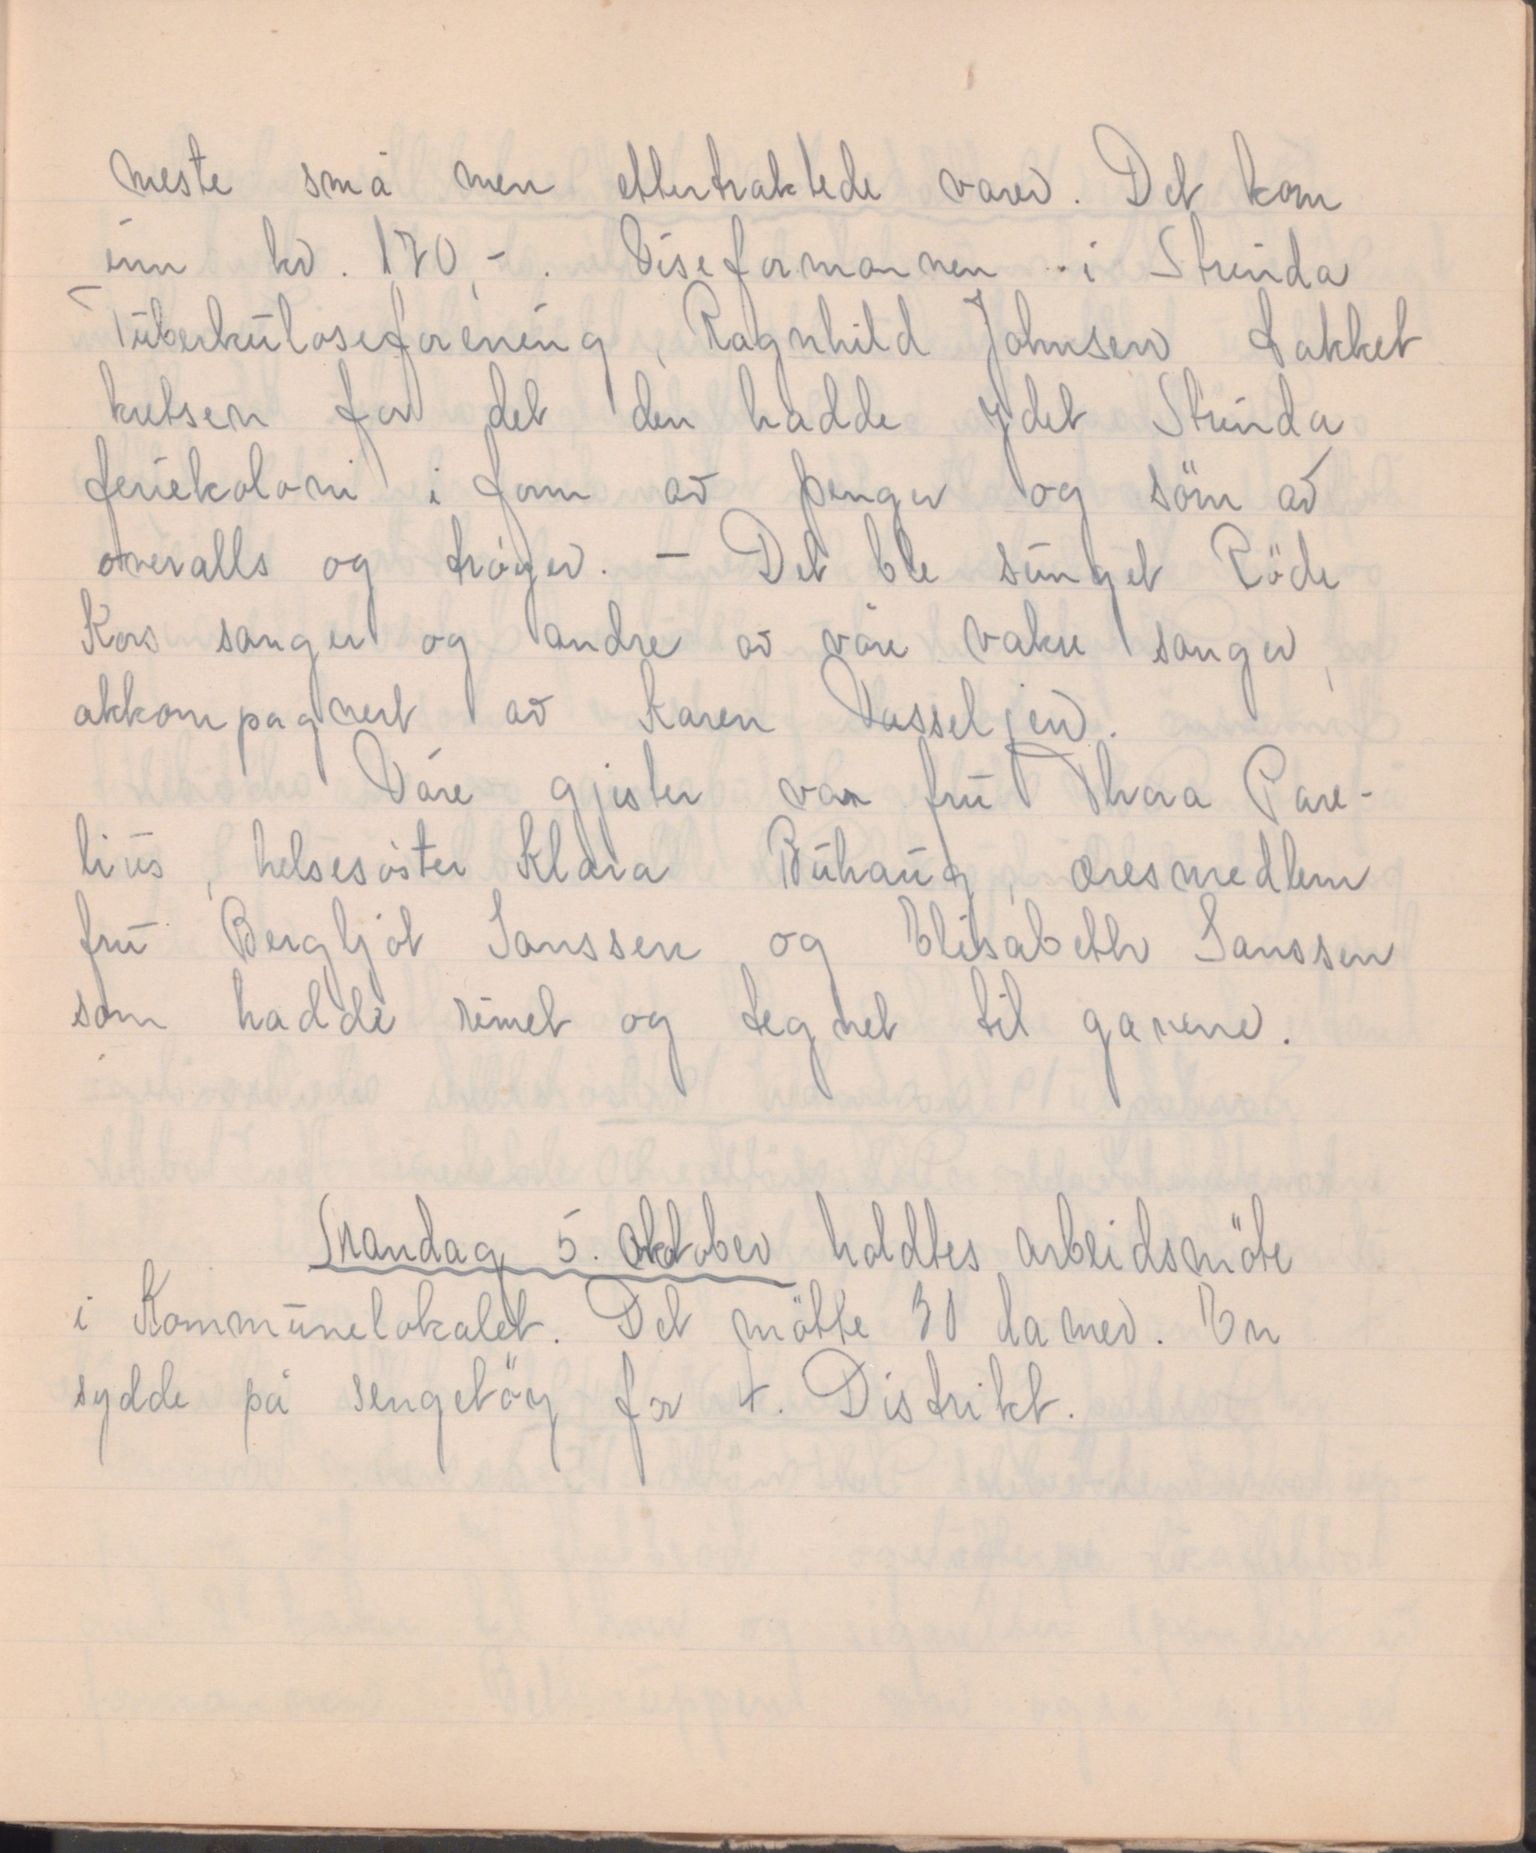 meste små men ettertraktede varer. Det kom
inn kr. 170,-. Viseformannen i Strinda
Tuberkuloseforening, Ragnhild Johnsen takket
kretsen for det den hadde ydet Strinda
feriekoloni i form av penger og söm av
overalls og tröyer. - Det ble sunget Röde
Kors sanger og andre av våre vakre sanger,
akkompagnert av Karen Dasseljen.
Våre gjester var fru Thora Pare-
lius, helsesöster Klara Buhaug, æresmedlem
fru Bergljot Janssen og Elisabeth Janssen
som hadde rimet og tegnet til gavene.
Mandag 5. oktober holdtes arbeidsmöte
i Kommunelokalet. Det mötte 30 damer. En
sydde på sengetöy for 4. Distrikt.